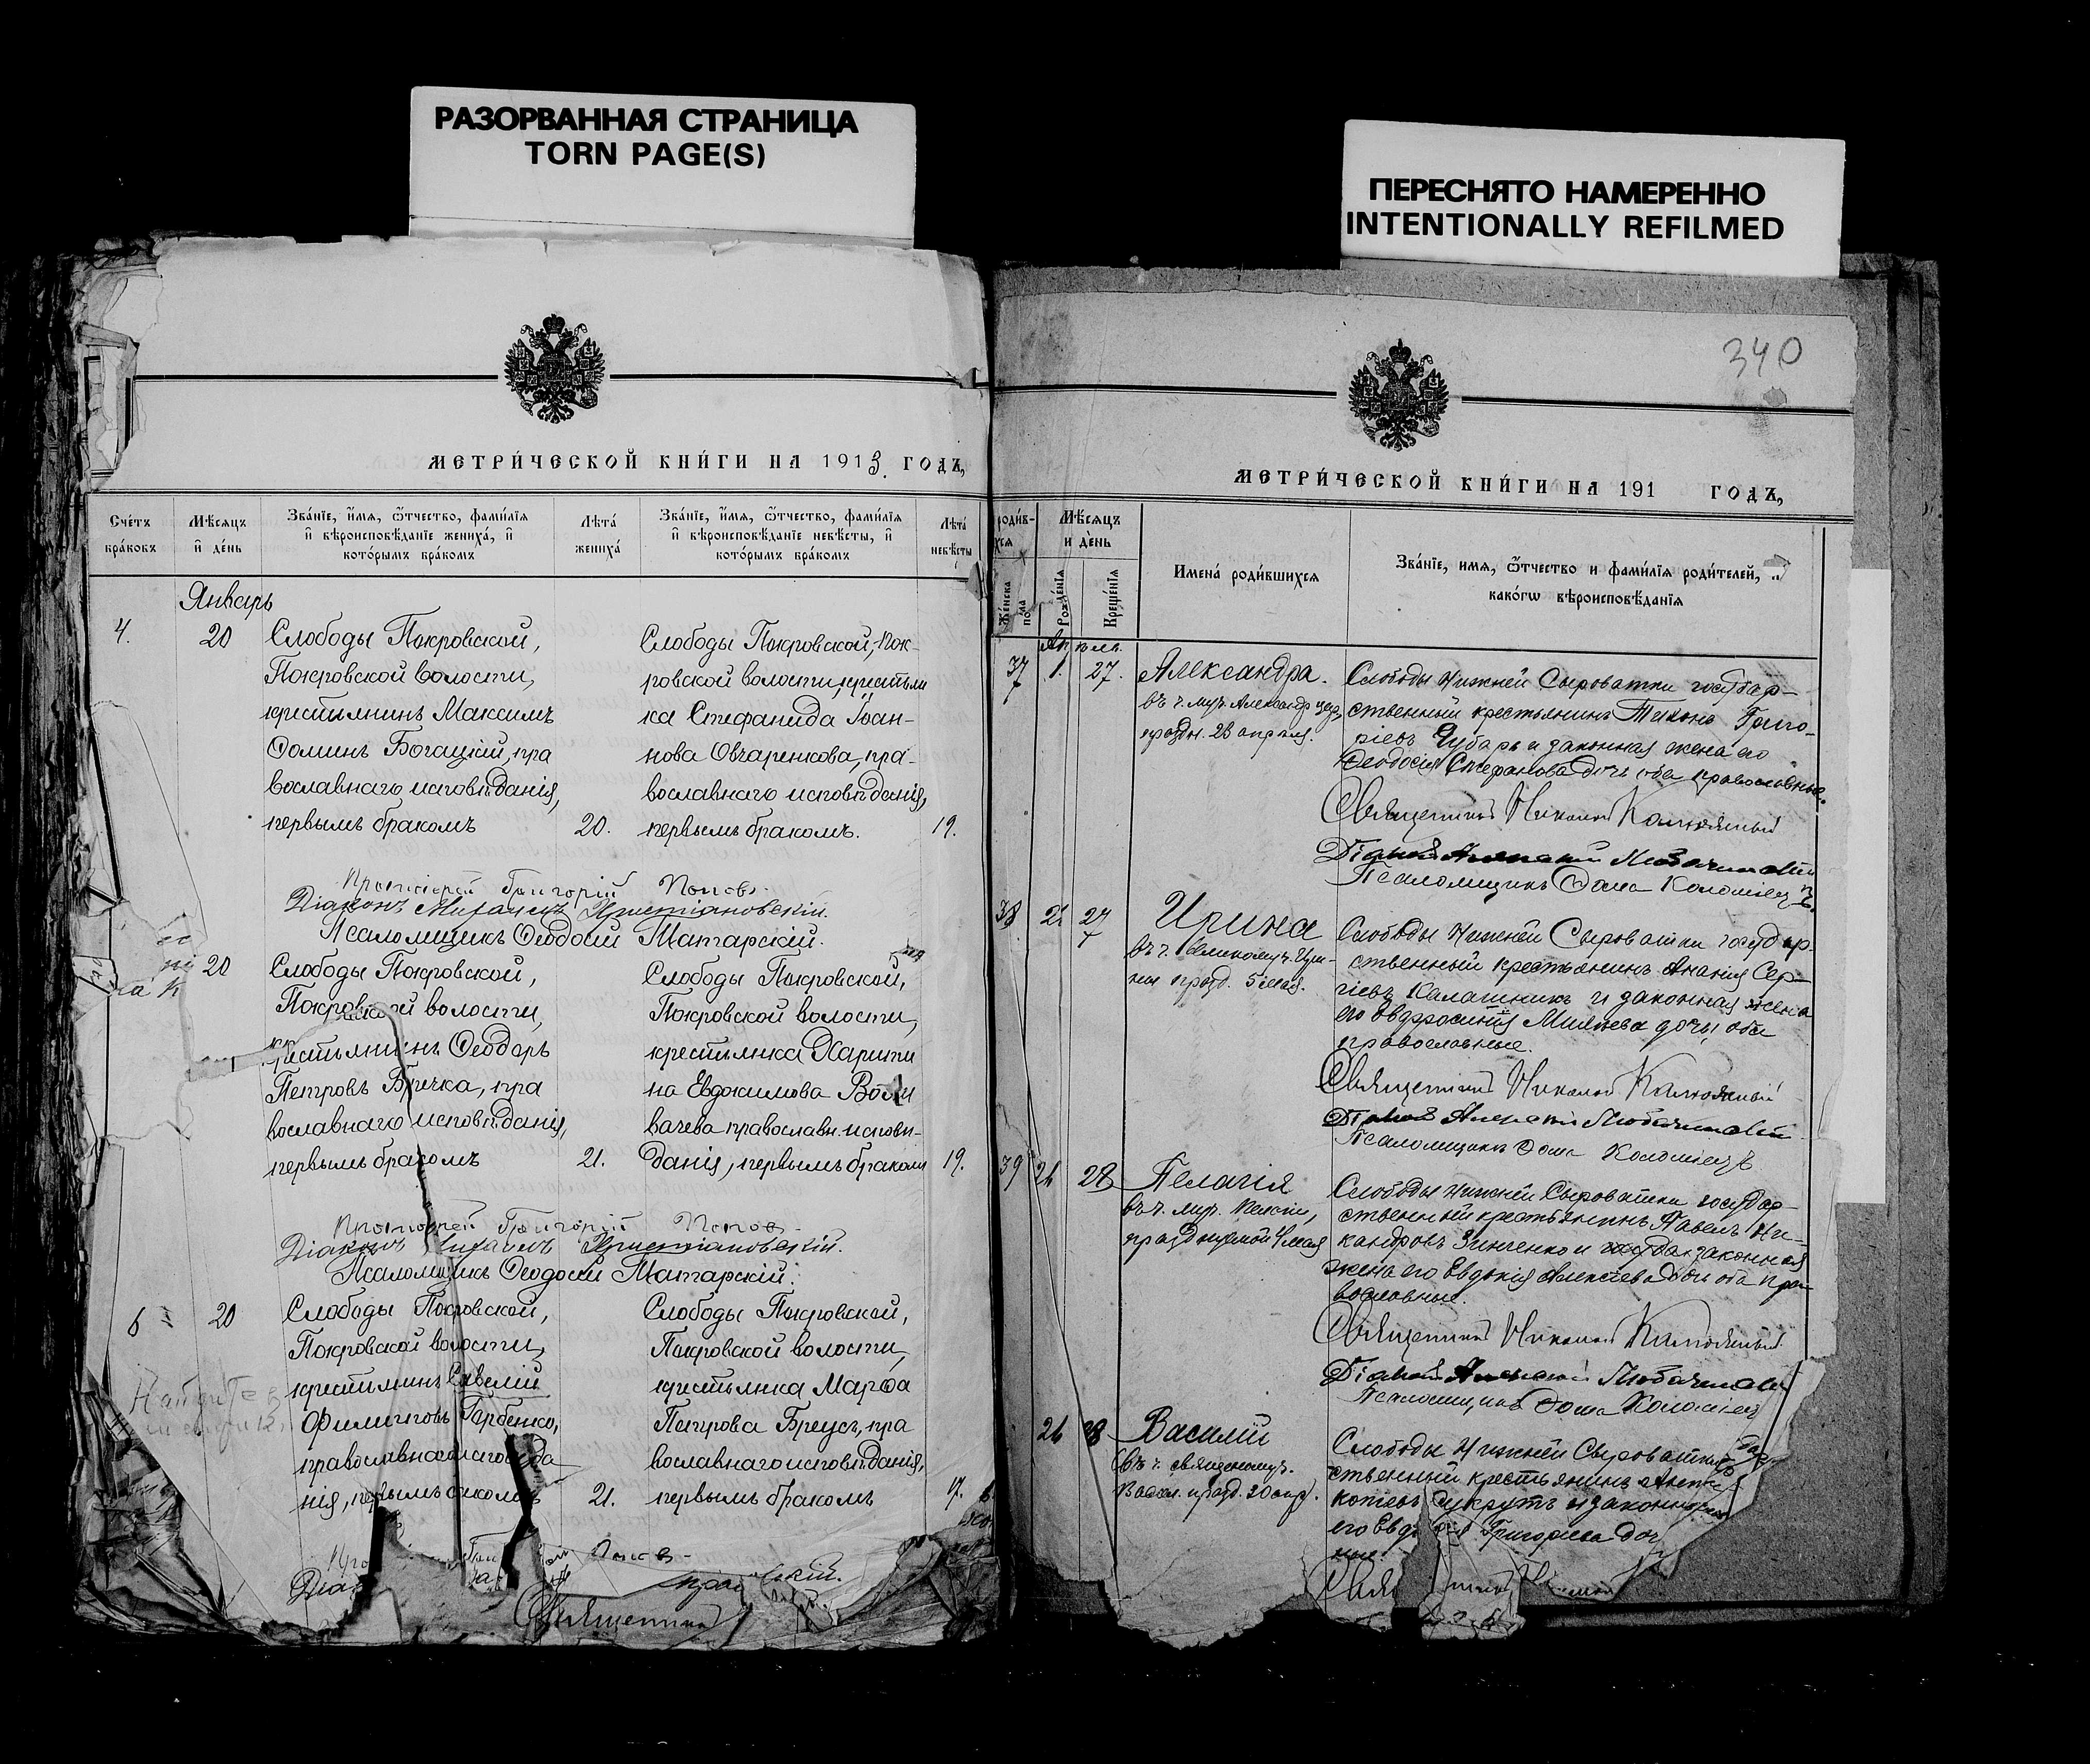 РАЗОРВАННАЯ СТРАНИЦА
TORN PAGE(S)
ПЕРЕСНЯТО НАМЕРЕННО
INTENTIONALLY REFILMED
МЕТРИ́ЧЕСКОЙ КНИ́ГИ НА 1913 ГОДЪ,
Сче́тъ бра́ковъ
Мѣ́сяцъ и҆ де́нь
Зва́нїе, и҆́мѧ, ѻ҆́тчество, фами́лїѧ
и҆ вѣроисповѣ́данїе жениха́, и҆
кото́рымъ бра́комъ
Лѣта́ жениха́
Зва́нїе, и҆́мѧ, ѻ҆́тчество, фами́лїѧ
и҆ вѣроисповѣ́данїе невѣ́сты, и҆
кото́рымъ бра́комъ
Лѣта́ невѣ́сты
Январь
4.
20
Слободы Покровской,
Покровской волости,
крестьянинъ Максимъ
Ѳоминъ Богацкій, пра
вославнаго исповѣданія,
первымъ бракомъ
20.
Слободы Покровской, Пок-
ровской волости, крестьян
ка Стефанида Іоан-
нова Овчаренкова, пра-
вославнаго исповѣданія,
первымъ бракомъ.
19.
Протоіерей Григорій Поповъ
Діаконъ Михаилъ Християновскій.
Псаломщикъ Ѳеодосій Матарскій.
20
Слободы Покровской,
Покровской волости,
крестьянинъ Ѳеодоръ
Петровъ Бричка, пра
вославнаго исповѣданія,
первымъ бракомъ
21.
Слободы Покровской,
Покровской волости,
крестьянка Харити
на Евдокимова
вачева православн. исповѣ-
данія, первымъ бракомъ
19.
Протоіерей Григорій Поповъ
Діаконъ Михаилъ Християновскій.
Псаломщикъ Ѳеодосій Матарскій.
6
20
Слободы Покровской,
Покровской волости,
крестьянинъ Савелій
Филипповъ Гарбенко,
православнаго
нія, первымъ
21.
Слободы Покровской,
Покровской волости,
крестьянка Марѳа
Петрова Бреусъ, пра
вославнаго исповѣданія,
первымъ бракомъ
17.
Поповъ
Священникъ
340
МЕТРИ́ЧЕСКОЙ КНИ́ГИ НА 191 ГОДЪ,
роди́в-
хся
Же́нска по́ла
Мѣ́сяцъ и де́нь
Рожде́нїѧ
Креще́нїѧ
Имена́ роди́вшихся
Зва́нїе, имѧ, ѻ҆́тчество и фами́лїѧ роди́телей, и҆
како́гѡ вѣроисповѣ́данїѧ
Апрѣль.
37
27.
Александра.
въ ч. муч. Александр цар.
праздн. 23 апрѣля.
Слободы Нижней Сыроватки государ-
ственный крестьянинъ Тихонъ Григо-
ріевъ Чубарь и законная жена его
Ѳеодосія Стефанова дочь оба православные.
Священникъ Николай
Діаконъ Алексѣй
Псаломщикъ Ѳома Коломіецъ.
38
21
27
Ирина
въ ч. великомуч. Ири-
ны празд. 5 мая.
Слободы Нижней Сыроватки государ-
ственный крестьянинъ Ананія Сер-
гіевъ Калашникъ и законная жена
его Евфросинія дочь, оба
православные.
Священникъ Николай
Діаконъ Алексѣй
Псаломщикъ Ѳома Коломіецъ
39
28
Пелагія
въ ч. муч. Пелагіи,
празднуемой 4 мая
Слободы Нижней Сыроватки государ-
ственный крестьянинъ Павелъ Ни-
кандровъ Зинченко и законная
жена его Евдокія Алексѣева дочь оба пра-
вославные.
Священникъ Николай
Діаконъ Алексѣй
Псаломщикъ Ѳома Коломіецъ
26
28
Василій
(въ ч. священомуч.
Васил. празд. 30 апр.
Слободы Нижней Сыроватки
ственный крестьянинъ
и законная
Григорьева доч